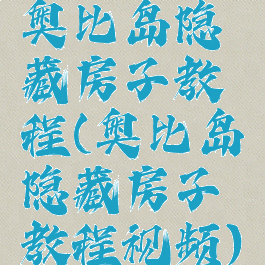 奥比岛隐
藏房子教
程(奥比岛
隐藏房子
教程视频)